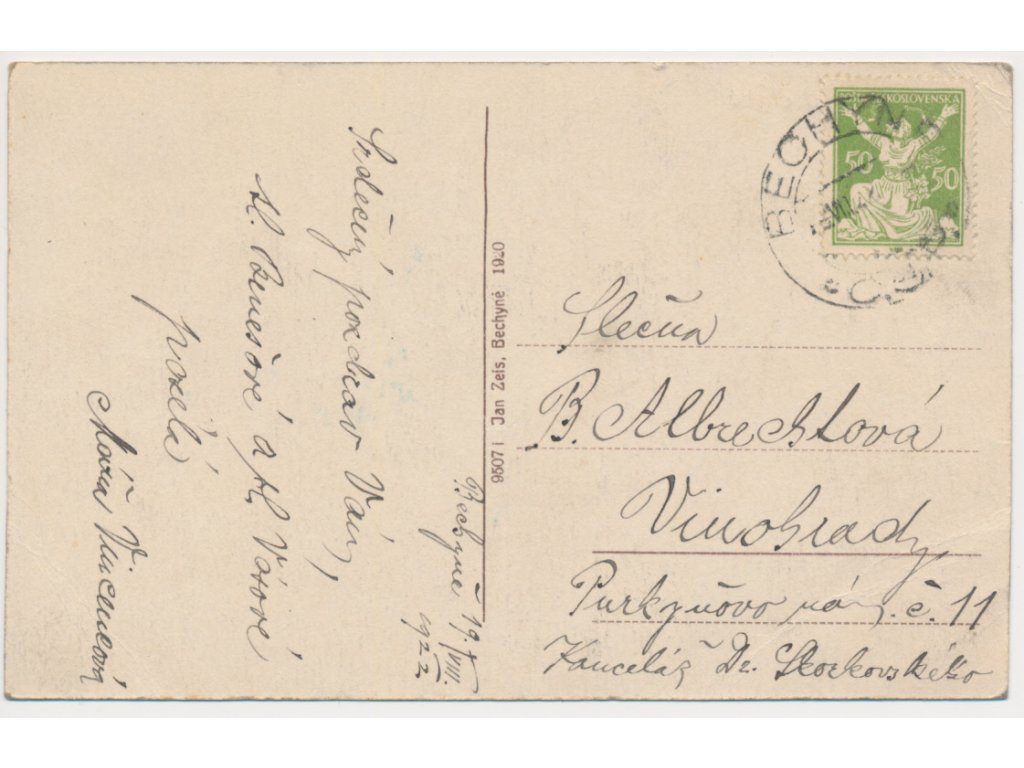 Bechyně 19./VIII.
1922
Srdečný pozdrav Vám,
sl. Benešové a sl. Vávrové
posílá
9507 i Jan Zeis, Bechyně 1920
POŠTA ČESKOSLOVENSKÁ
50 50
BECHYNĚ
Slečna
B. Albrechtová
Vinohrady
Purkyňovo nám. č. 11
Kancelář Dr.